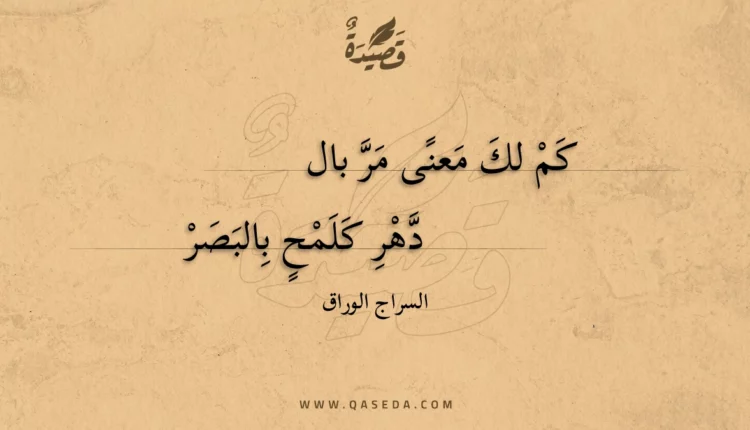 قَصِيْدَةٌ
كَمْ لكَ مَعنًى مَرَّ بال
دَّهْرِ كَلَمْحٍ بِالبَصَرْ
السراج الوراق
WWW.QASEDA.COM